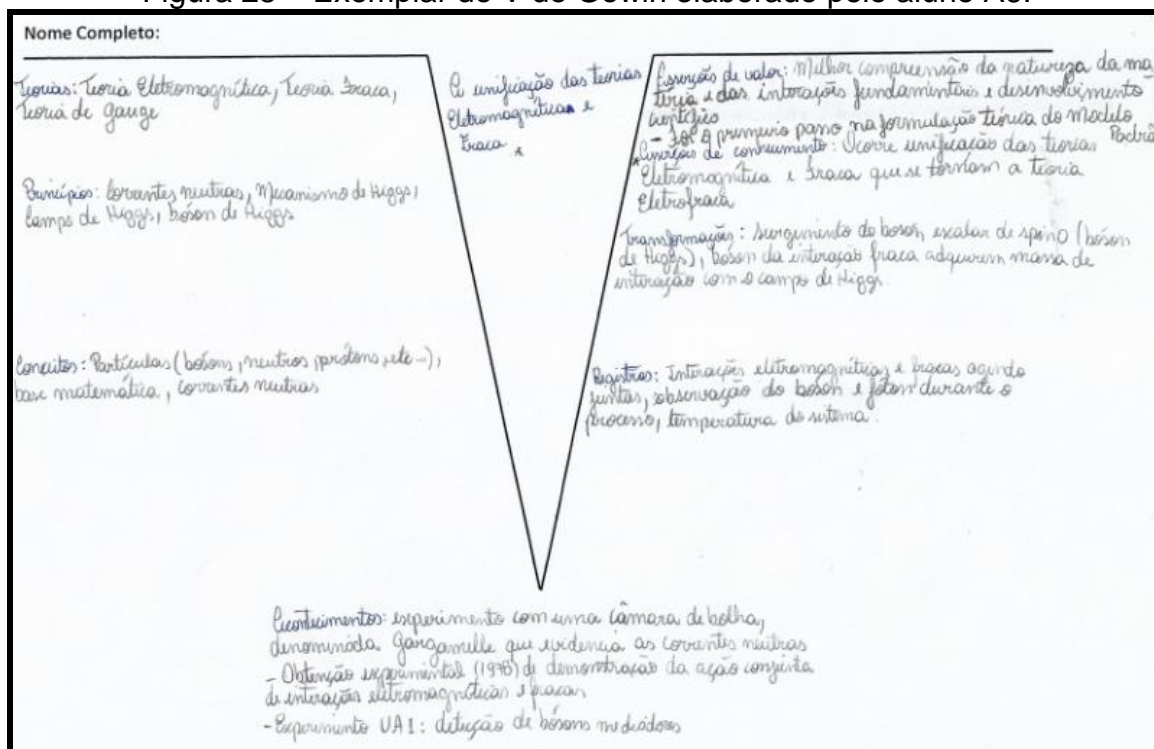 Figura 28 – Exemplar do V de Gowin elaborado pelo aluno A6.
Nome Completo:
Teorias: Teoria Eletromagnética, Teoria Fraca,
Teoria de gauge
Princípios: Correntes neutras, Mecanismo de Higgs,
Campo de Higgs, bóson de Higgs
Conceitos: Partículas (bósons, neutros, prótons, etc...),
base matemática, correntes neutras
A unificação das teorias
Eletromagnéticas e
Fraca
Asserções de valor: Melhor compreensão da natureza da ma
téria e das interações fundamentais e desenvolvimento
científico
- Foi o primeiro passo na formulação teórica do Modelo Padrão
Asserções de conhecimento: Ocorre unificação das teorias
Eletromagnética e Fraca que se tornam a teoria
Eletrofraca
Transformações: Surgimento do boson, escalar de spin 0 (bóson
de Higgs), bóson da interação fraca adquirem massa de
interação com o campo de Higgs.
Registros: Interações eletromagnéticas e fracas agindo
juntas, observação do bóson e fóton durante o
processo, temperatura do sistema.
Acontecimentos: experimento com uma câmara de bolha,
denominada Gargamelle que evidencia as correntes neutras
- Obtenção experimental (1978) de demonstração da ação conjunta
de interações eletromagnéticas e fracas
- Experimento UA1: detecção de bósons mediadores